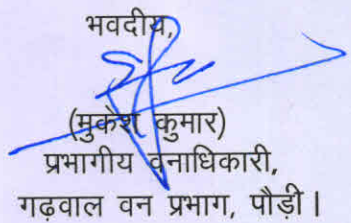 भवदीय,
(मुकेश कुमार)
प्रभागीय वनाधिकारी,
गढ़वाल वन प्रभाग, पौड़ी।